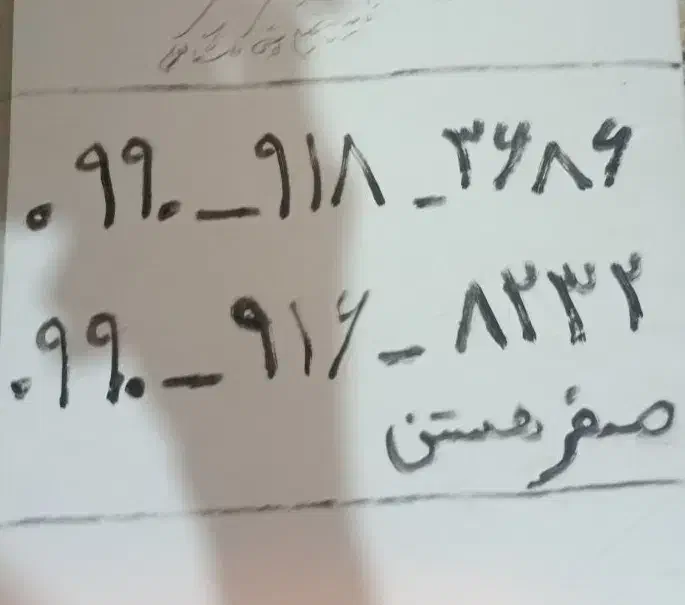 ۰۹۹۰ - ۹۱۸ - ۳۶۸۶
۰۹۹۰ - ۹۱۶ - ۸۲۳۲
صفر هستن